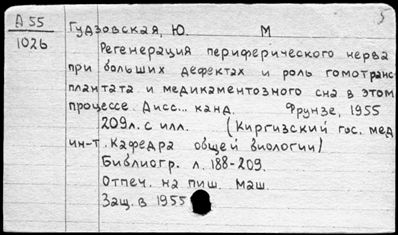 Д 55
1026
5
Гудзовская, Ю. М
Регенерация периферического нерва
при больших дефектах и роль гомотранс
плантата и медикаментозного сна в этом
процессе. Дисс... канд. Фрунзе, 1955
209л. с илл. (Киргизский гос. мед
ин-т. Кафедра общей биологии)
Библиогр. л. 188-209.
Отпеч. на пиш. маш.
Защ. в 1955